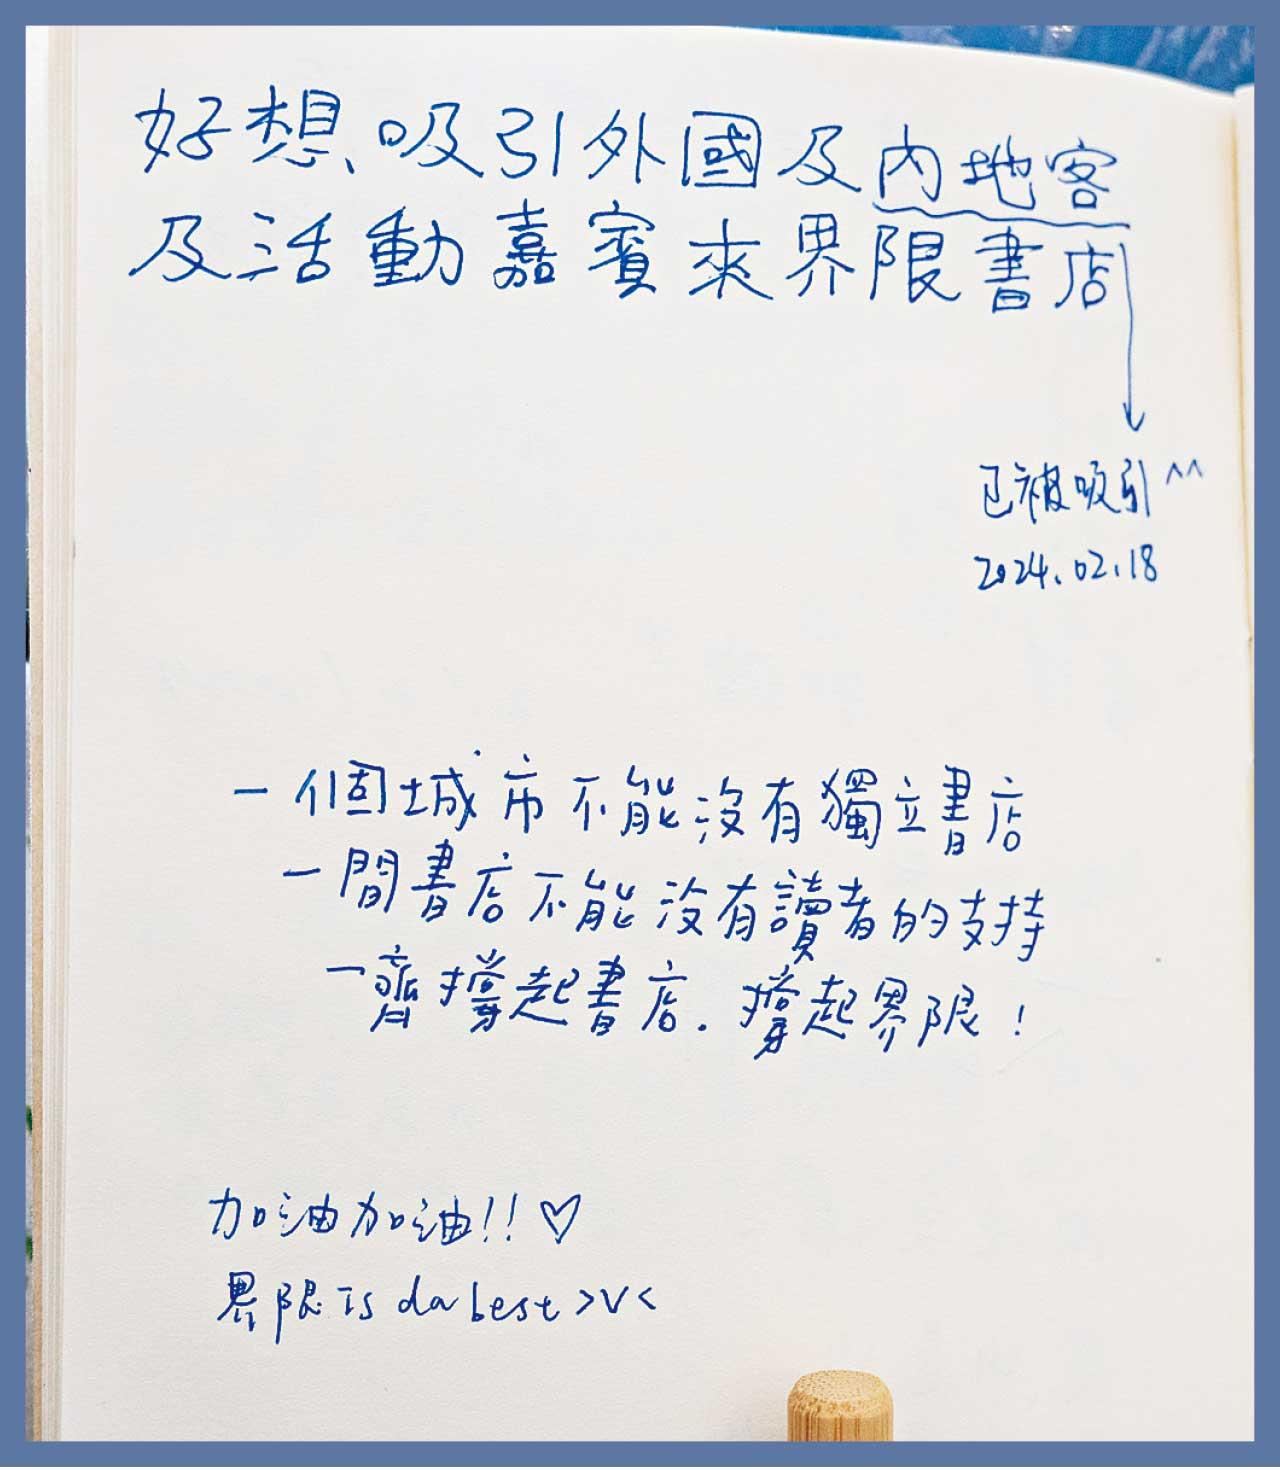 好想吸引外國及內地客
及活動嘉賓來界限書店
已被吸引^^
2024.02.18
一個城市不能沒有獨立書店
一間書店不能沒有讀者的支持
一齊撐起書店.撐起界限!
加油加油!!♡
界限is da best >v<